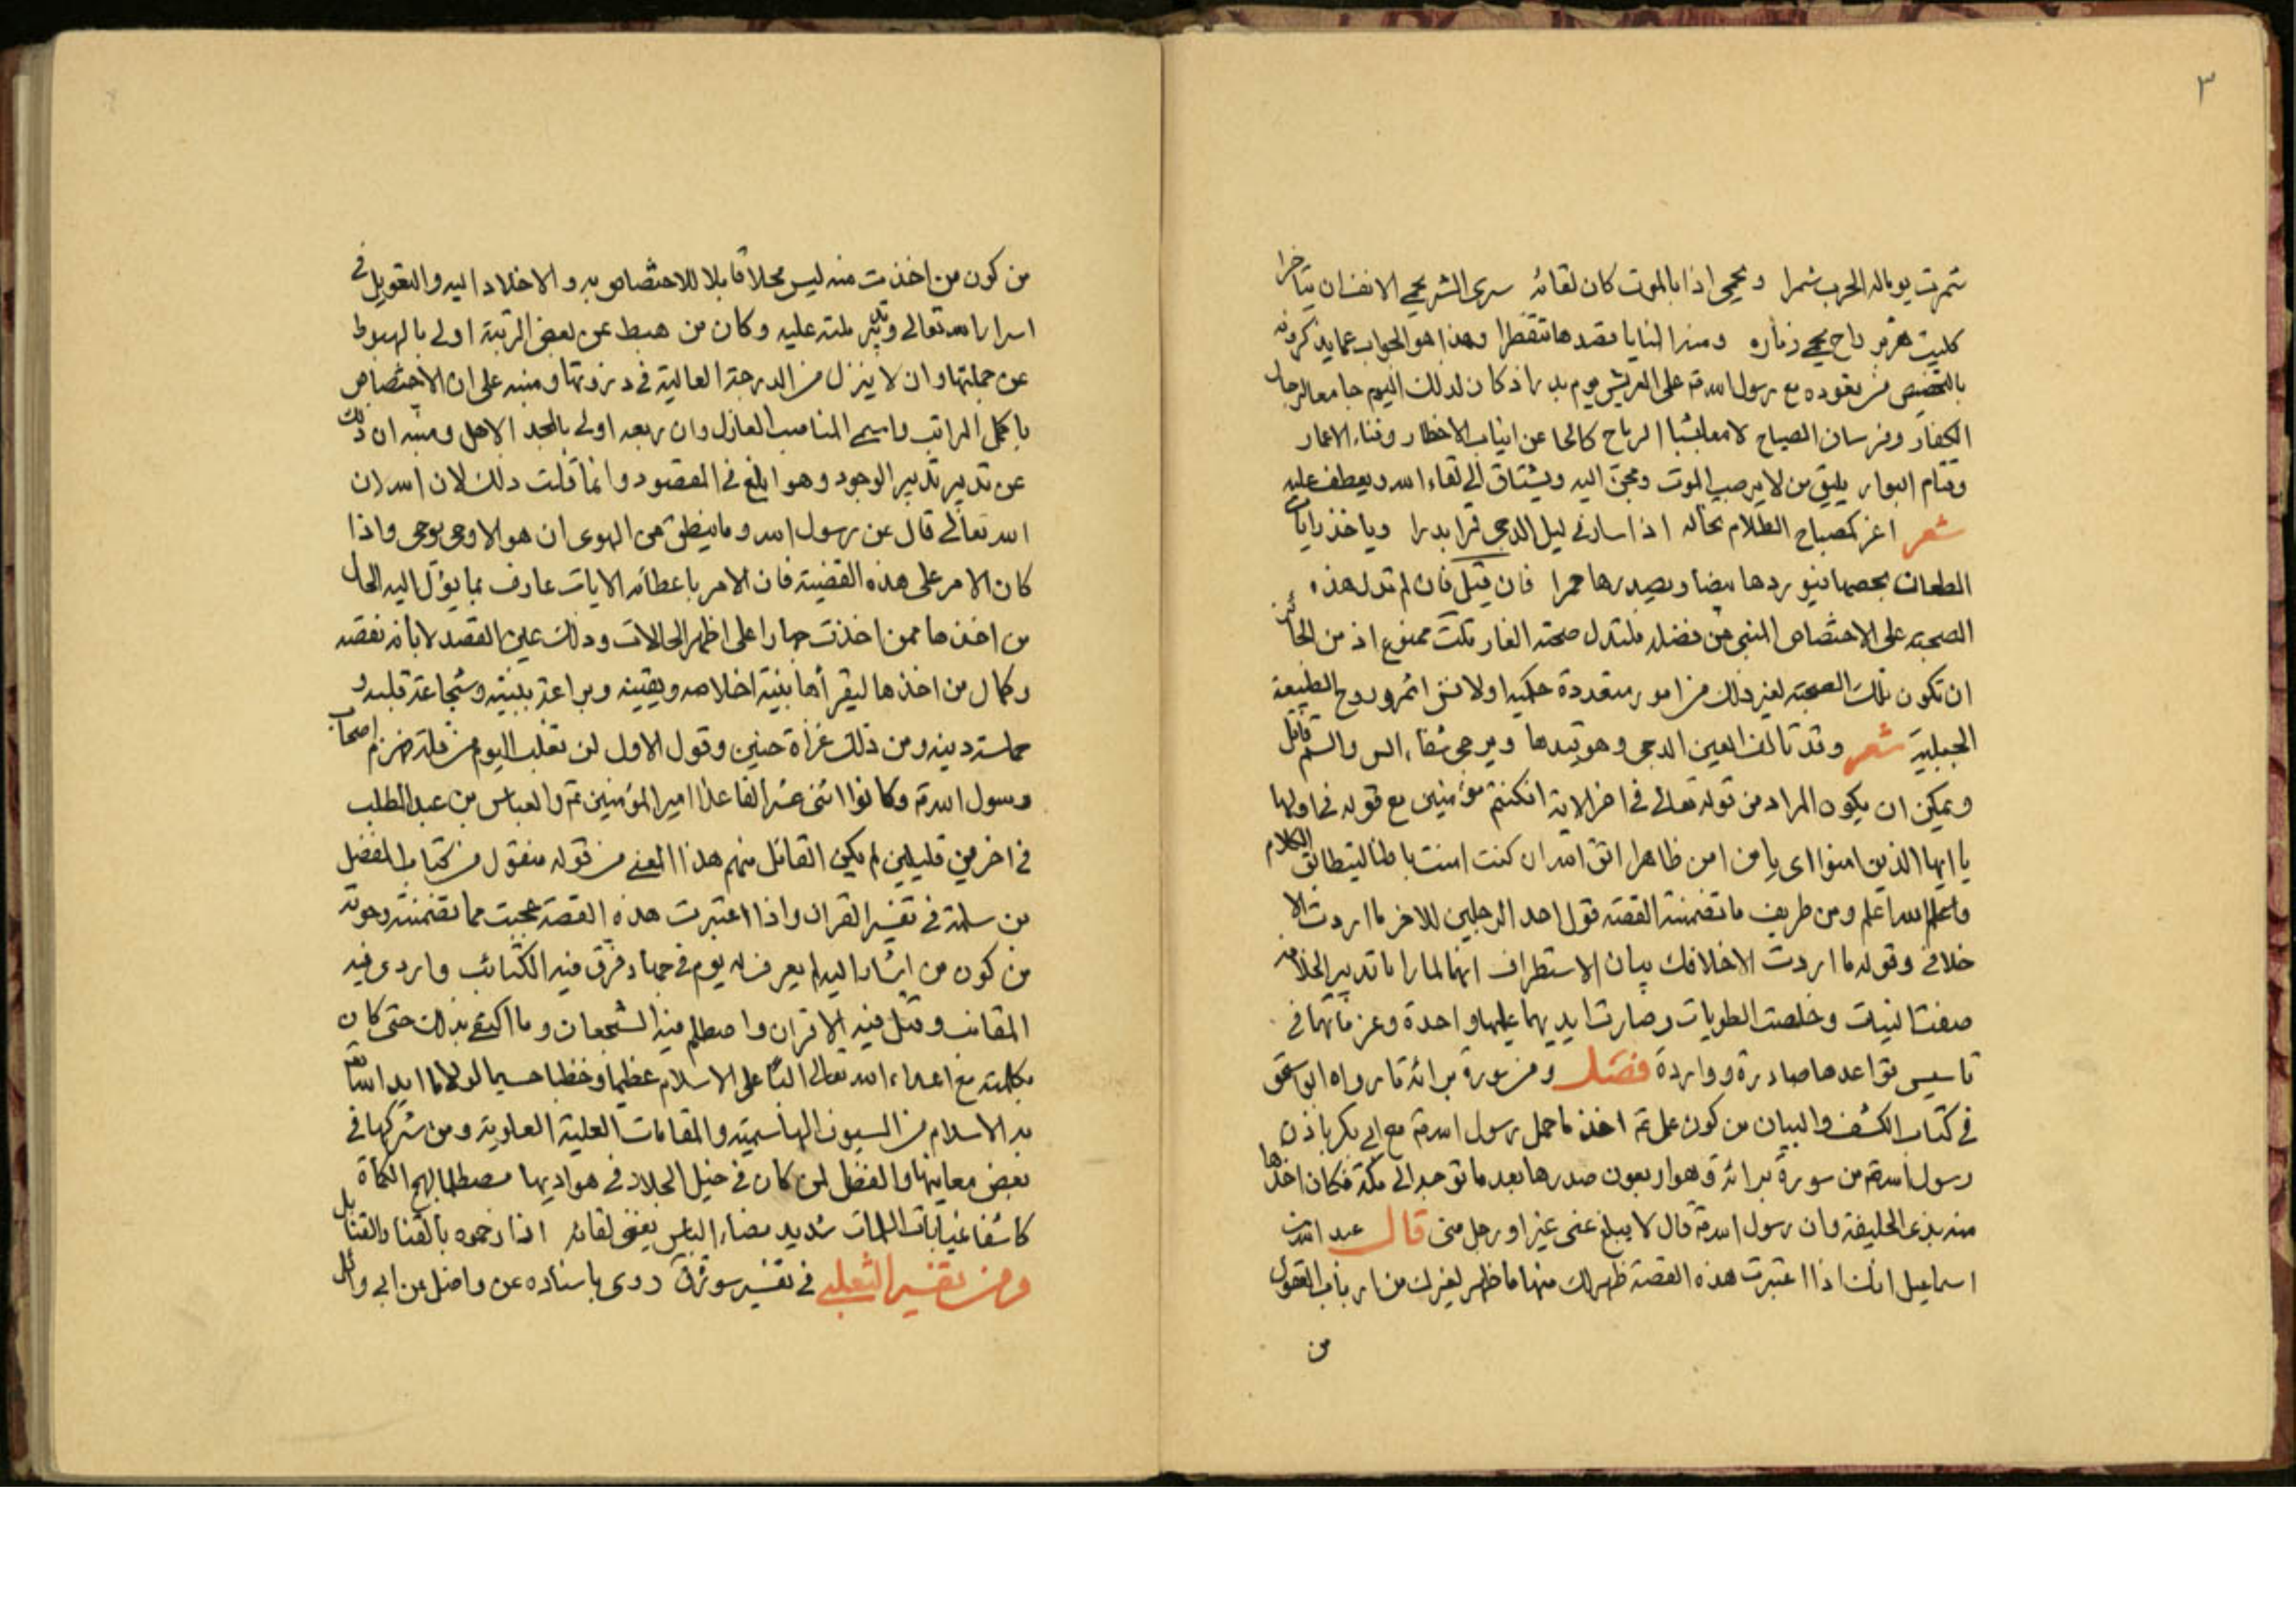 ٣
شمرت يوما له الحرب شمرا ويحمي اذا ما الموت كان لقائه سرى الشر يحمي الانف ان يتاخرا
كليث هزبر راح يحمي ذماره هذا هو الجواب عما يذكرونه
بالتخصيص من قعوده مع رسول الله ص على العريش يوم بدر اذ كان لذلك اليوم جامعا لرجال
الكفار وفرسان الصياح لامعا بشبا الرماح كالحا عن انياب الاخطار وفناء الاعمار
وقتام البوار يليق من لا يرهب الموت ويحن اليه ويشتاق الى لقاء الله ويعطف عليه
شعر اغر كمصباح الظلام تخاله اذا سار في ليل الدجى قمرا بدرا وياخذ رايات
الطعان بحصها فيوردها بيضا ويصدرها حمرا فان قيل فان لم تدل هذه
الصحبة على الاختصاص المنبي عن فضله فلتدل صحبة الغار قلت ممنوع اذ من الجائز
ان تكون تلك الصحبة لغير ذلك من امور متعددة حكمية او لانس اثمر وروح الطبيعة
الجبلية شعر وقد تالف العين الدجى وهو قيدها ويرجى شفاء السم والسم قاتل
ويمكن ان يكون المراد من قوله تعالى في اخر الاية ان كنتم مؤمنين مع قوله في اولها
يا ايها الذين امنوا اى يا من امن ظاهرا اتق الله ان كنت امنت باطنا ليتطابق الكلام
والله اعلم ومن طريف ما تضمنته القصة قول احد الرجلين للاخر ما اردت الا
خلافي وقوله ما اردت الا خلافك بيان الاستطراف انهما لما راما تدبير الخلافة
صفت النيات وخلصت الطويات وصارت ايديهما عليها واحدة وعزماتهما في
تاسيس قواعدها صادرة وواردة فصل ومن سورة برائة ما رواه ابو اسحق
في كتاب الكشف والبيان من كون علي ع اخذ ما حمل رسول الله ص مع ابي بكر باذن
رسول الله ص من سورة برائة وهو اربعون صدرها بعد ما توجه الى مكة فكان اخذها
منه بذي الحليفة وان رسول الله ص قال لا يبلغ عنى غيرى او رجل منى قال عبد الله بن
اسماعيل انك اذا اعتبرت هذه القصة ظهر لك منها ما ظهر لغيرك من ارباب العقول
من
من كون من اخذت منه ليس محلا قابلا للاختصاص به والاخلاد اليه والتعويل في
اسرار الله تعالى عليه وكان من هبط عن بعض الرتبة اولى بالهبوط
عن جملتها وان لا ينزل من الدرجة العالية في ذروتها ومنبه على ان الاختصاص
باكمل المراتب واسمى المناصب المعازل وان ربعه اولى بالمجد الاهل ومنبه ان ذلك
عن تدبير مدبر الوجود وهو ابلغ في المقصود وانما قلت ذلك لان
الله تعالى قال عن رسول الله وما ينطق عن الهوى ان هو الا وحى يوحى واذا
كان الامر على هذه القضية فان الامر باعطائه الايات عارف بما يؤل اليه الحال
من اخذها ممن اخذت جهارا على اظهر الحالات وذلك عين القصد لابانة نقصه
وكمال من اخذها ليقرأها بنية اخلاصه ويقينه وبراعة بنيته وشجاعة قلبه و
حماسة دينه ومن ذلك غزاة حنين وقول الاول لن نغلب اليوم من قلة فهزم اصحاب
رسول الله ص وكانوا اثنى عشر الفا عدا امير المؤمنين ع والعباس بن عبد المطلب
في اخرين قليلين لم يكن القائل منهم هذا المعنى من قوله منقول من كتاب المفضل
بن سلمة في تفسير القران واذا اعتبرت هذه القصة عجبت مما تضمنته وحوته
من كون من اشار اليه لم يعرف له يوم في جهاد فرق فيه الكتائب واردى فيه
المقانب وقتل فيه الاقران واصطلم فيه الشجعان وما اكتفى بذلك حتى كان
بكلمته مع اعداء الله تعالى البا على الاسلام عظيما وخطبا جسيما لولا ما ايد الله تعالى
به الاسلام من السيوف الهاشمية والمقامات العلية العلوية ومن شركها في
بعض معانيها والفضل لمن كان في خيل الجلاد في هواديها مصطلما لهم الكماة
كاشفا غيابات الملمات شديد مضاء الباس يغنى لقائه اذا زحموه بالقنا والقنابل
ومن تفسير الثعلبي في تفسير سورة ق روى باسناده عن واصل عن ابي وائل